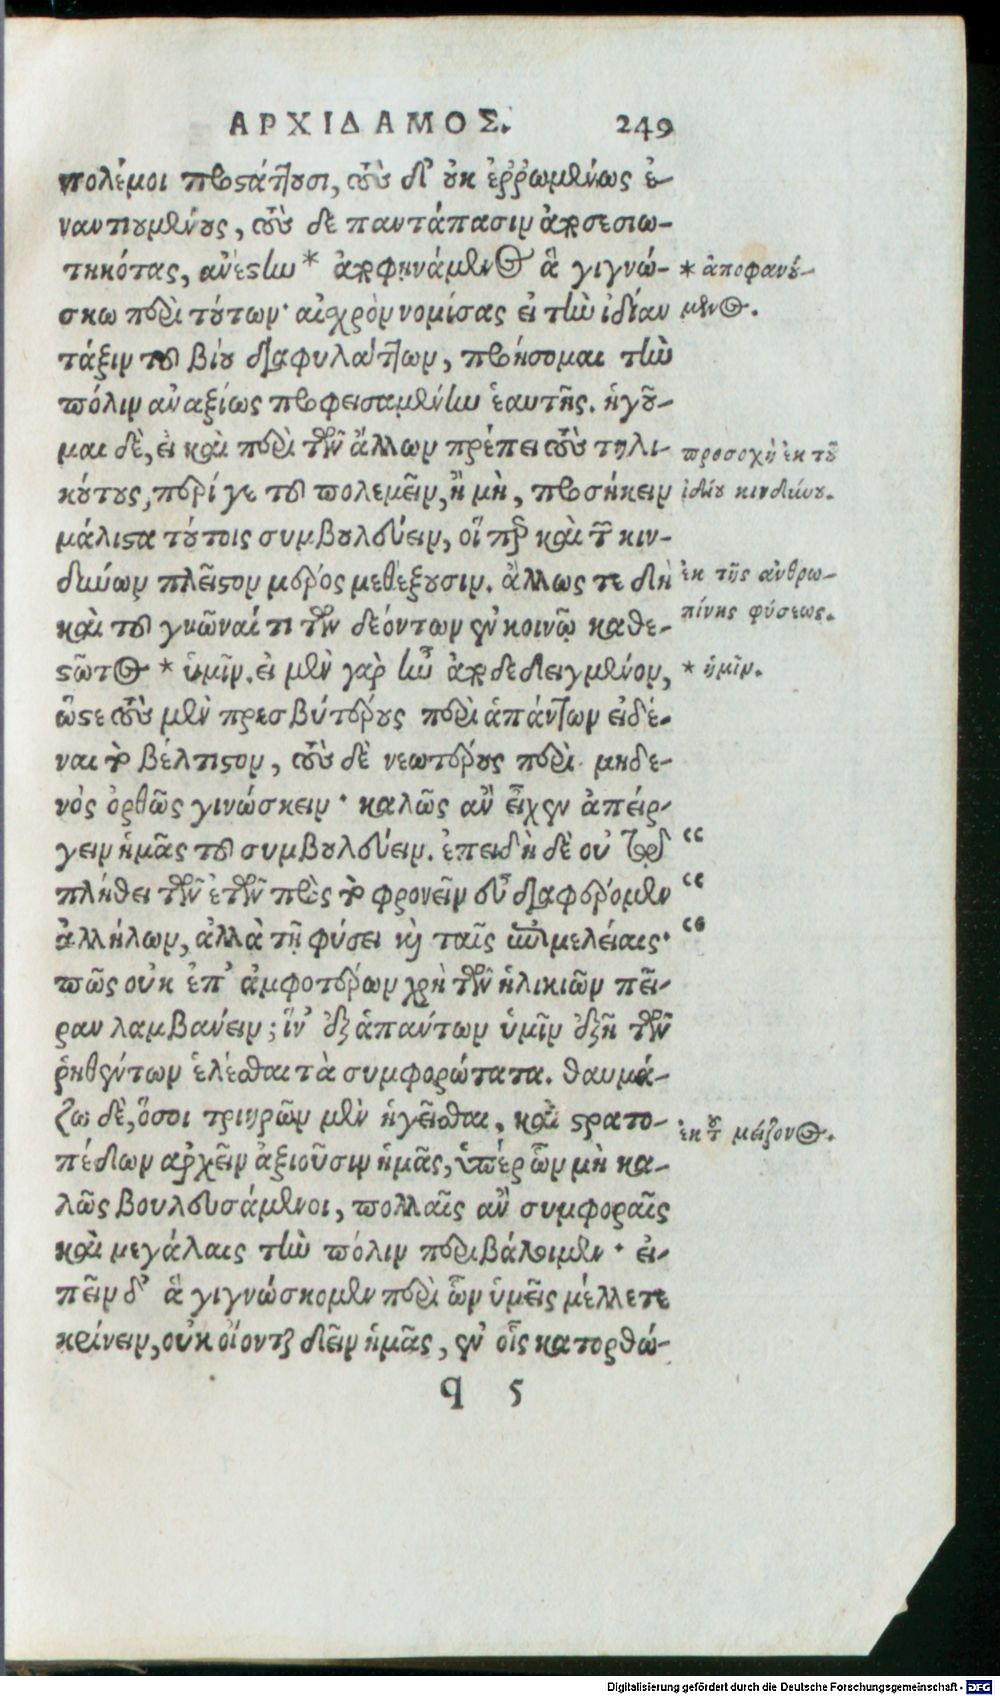 ΑΡΧΙΔΑΜΟΣ. 249
πολέμοι προςάττουσι, τοὺς δ' οὐκ ἐῤῥωμένως ἐ-
ναντιουμένους, τοὺς δὲ παντάπασιν ἀποσεσιω-
πηκότας, ἀνέςην * ἀποφηνάμενος ἃ γιγνώ-
* ἀποφανού-
σκω περὶ τούτων· αἰσχρὸν νομίσας εἰ τὴν ἰδίαν
μενος.
τάξιν τοῦ βίου διαφυλάττων, προήσομαι τὴν
πόλιν ἀναξίως προφεισαμένην ἑαυτῆς. ἡγοῦ-
μαι δὲ, εἰ καὶ περὶ τῶν ἄλλων πρέπει τοὺς τηλι-
προσοχὴ ἐκ τοῦ
κούτους, περί γε τοῦ πολεμεῖν, ἢ μὴ, προσήκειν
ἰδίου κινδύνου.
μάλιςα τούτοις συμβουλεύειν, οἵ περ καὶ τῶν κιν-
δύνων πλεῖςον μέρος μεθέξουσιν. ἄλλως τε δὴ
ἐκ τῆς ἀνθρω-
καὶ τοῦ γνῶναί τι τῶν δεόντων ἐν κοινῷ καθε-
πίνης φύσεως.
ςῶτος * ὑμῖν. εἰ μὲν γὰρ ἦν ἀποδεδειγμένον,
* ἡμῖν.
ὥςε τοὺς μὲν πρεσβυτέρους περὶ ἁπάντων εἰδέ-
ναι τὸ βέλτιςον, τοὺς δὲ νεωτέρους περὶ μηδε-
νὸς ὀρθῶς γινώσκειν· καλῶς ἂν εἶχεν ἀπείρ-
γειν ἡμᾶς τοῦ συμβουλεύειν. ἐπειδὴ δὲ οὐ τῷ “
πλήθει τῶν ἐτῶν πρὸς τὸ φρονεῖν εὖ διαφέρομεν “
ἀλλήλων, ἀλλὰ τῇ φύσει καὶ ταῖς ἐπιμελείαις· “
πῶς οὐκ ἐπ' ἀμφοτέρων χρὴ τῶν ἡλικιῶν πεῖ-
ραν λαμβάνειν; ἵν' ἐξ ἁπάντων ὑμῖν ἐξῇ τῶν
ῥηθέντων ἑλέσθαι τὰ συμφορώτατα. θαυμά-
ζω δὲ, ὅσοι τριηρῶν μὲν ἡγεῖσθαι, καὶ ςρατο-
ἐκ τοῦ μείζονος.
πέδων ἄρχειν ἀξιοῦσιν ἡμᾶς, ὑπὲρ ὧν μὴ κα-
λῶς βουλευσάμενοι, πολλαῖς ἂν συμφοραῖς
καὶ μεγάλαις τὴν πόλιν περιβάλοιμεν· εἰ-
πεῖν δ' ἃ γιγνώσκομεν περὶ ὧν ὑμεῖς μέλλετε
κρίνειν, οὐκ οἴονται δεῖν ἡμᾶς, ἐν οἷς κατορθώ-
q 5
Digitalisierung gefördert durch die Deutsche Forschungsgemeinschaft - DFG